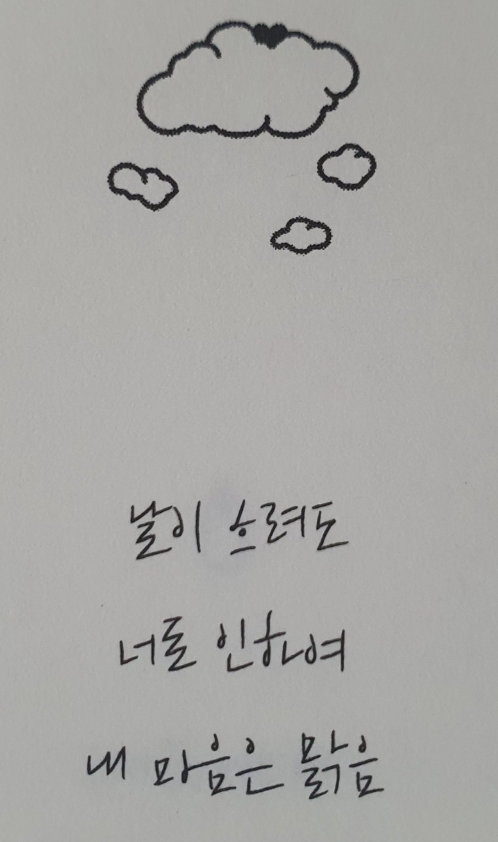 날이 흐려도
너로 인하여
내 마음은 맑음